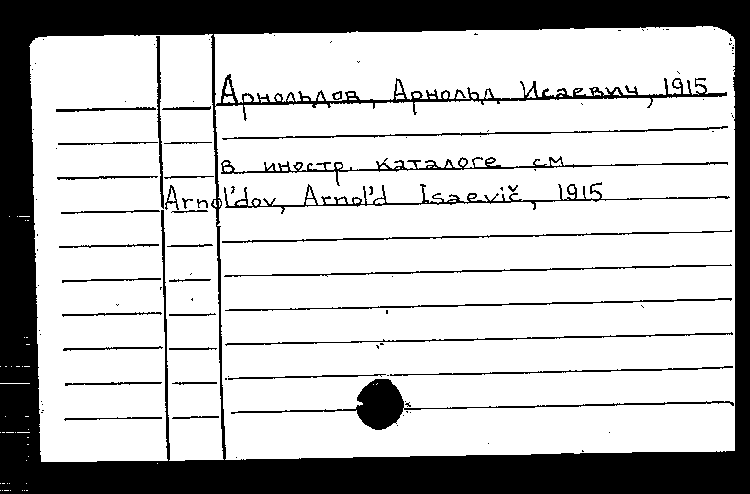 Арнольдов, Арнольд Исаевич, 1915
в иностр. каталоге см.
Arnol'dov, Arnol'd Isaevič, 1915